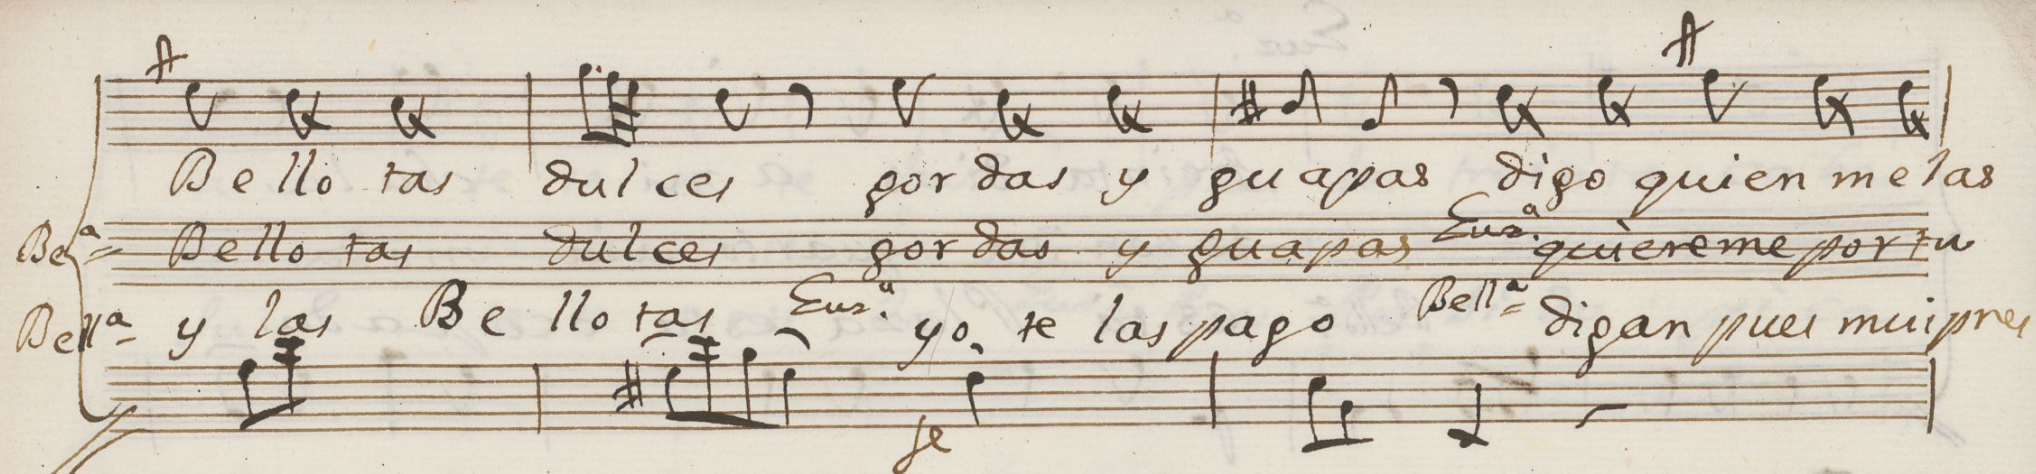 Bellotas dulces gordas y guapas digo quien me las
Beª Bellotas dulces gordas y guapas Euz.ª quiereme por tu
Bellª y las Bellotas Euz.ª yo te las pago Bellª digan pues mui pres